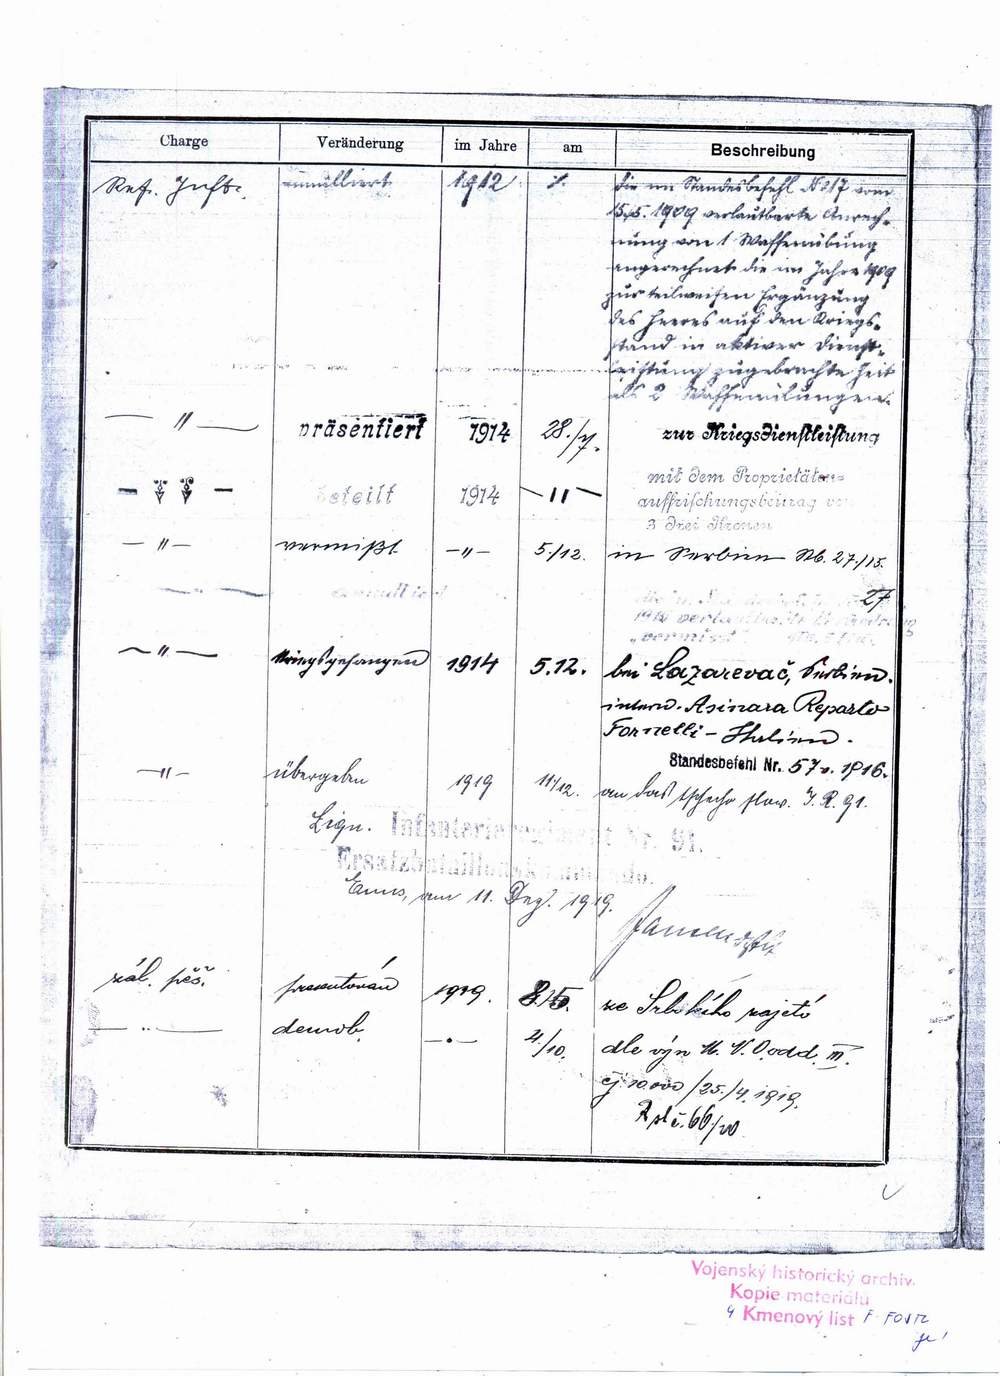 Charge Veränderung im Jahre am Beschreibung
Res. Inft. annulliert 1912 die im Standesbefehl N 217 vom
15./5. 1909 verlautbarte Anrech-
nung von 1 Waffenübung
angerechnet die im Jahre 1909
zur teilweisen Ergänzung
des Heeres auf den Kriegs-
stand in aktiver Dienst-
leistung zugebrachte Zeit
als 2 Waffenübungen.
— " — präsentiert 1914 28./7. zur Kriegsdienstleistung
— " — beteilt 1914 — " — mit dem Proprietäten-
auffrischungsbeitrag
3 drei Kronen
— " — vermißt — " — 5./12. in Serbien Stb. 27./15.
27
"vermisst"
— " — Kriegsgefangen 1914 5.12. bei Lazarevač, Serbien.
intern. Asinara Reparto
Fornelli – Italien.
Standesbefehl Nr. 57 v. 1916.
— " — übergeben 1919 11/12. an das tschecho slow. I. R. 91.
Lign. Infanterieregiment Nr. 91.
Ersatzbataillonskommando.
Enns, am 11. Dez. 1919.
zál. pěš. presentován 1919. 8./5. ze Srbského zajetí
— " — demob. — " — 4./10. dle výn M. N. O. odd. III.
čj 10.000/25./4. 1919.
66/20
Vojenský historický archiv.
Kopie materiálu
Kmenový list